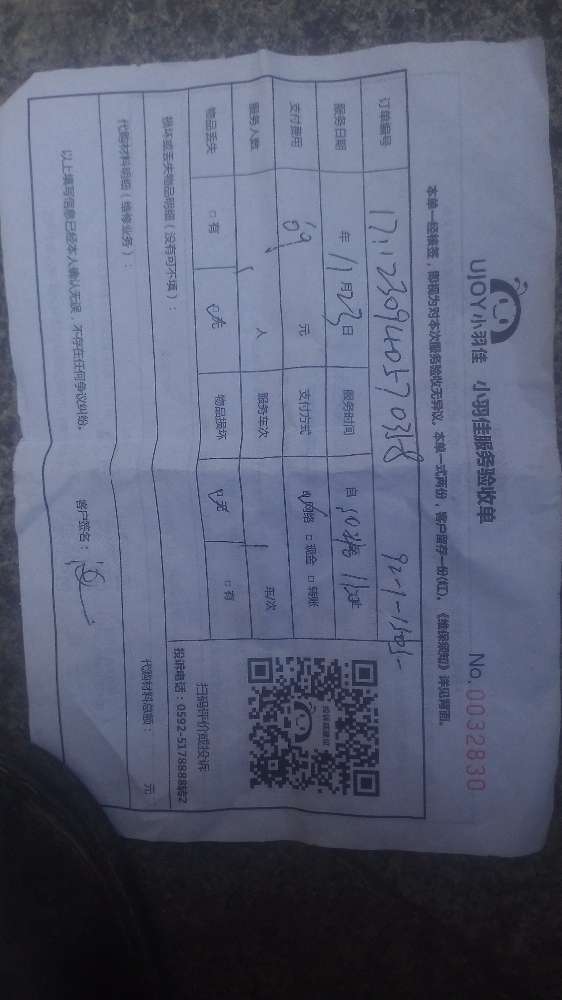 UJOY小羽佳 小羽佳服务验收单 No.0032830
本单一经签,即视为对本次服务验收无异议。本单一式两份,客户留存一份(红)。《维保须知》详见背面。
订单编号
服务日期 年 11月23日 服务时间 自
支付费用 69 元 支付方式 网络 □现金 □转账
服务人数 1 人 服务车次 1 车/次
物品丢失 □有 无 物品损坏 无 □有
损坏或丢失物品明细(没有可不填):
代购材料明细(维修业务):
代购材料总额: 元
以上填写信息已经本人确认无误,不存在任何争议纠纷。 客户签名:
扫码评价或投诉
投诉电话:0592-5178888转2